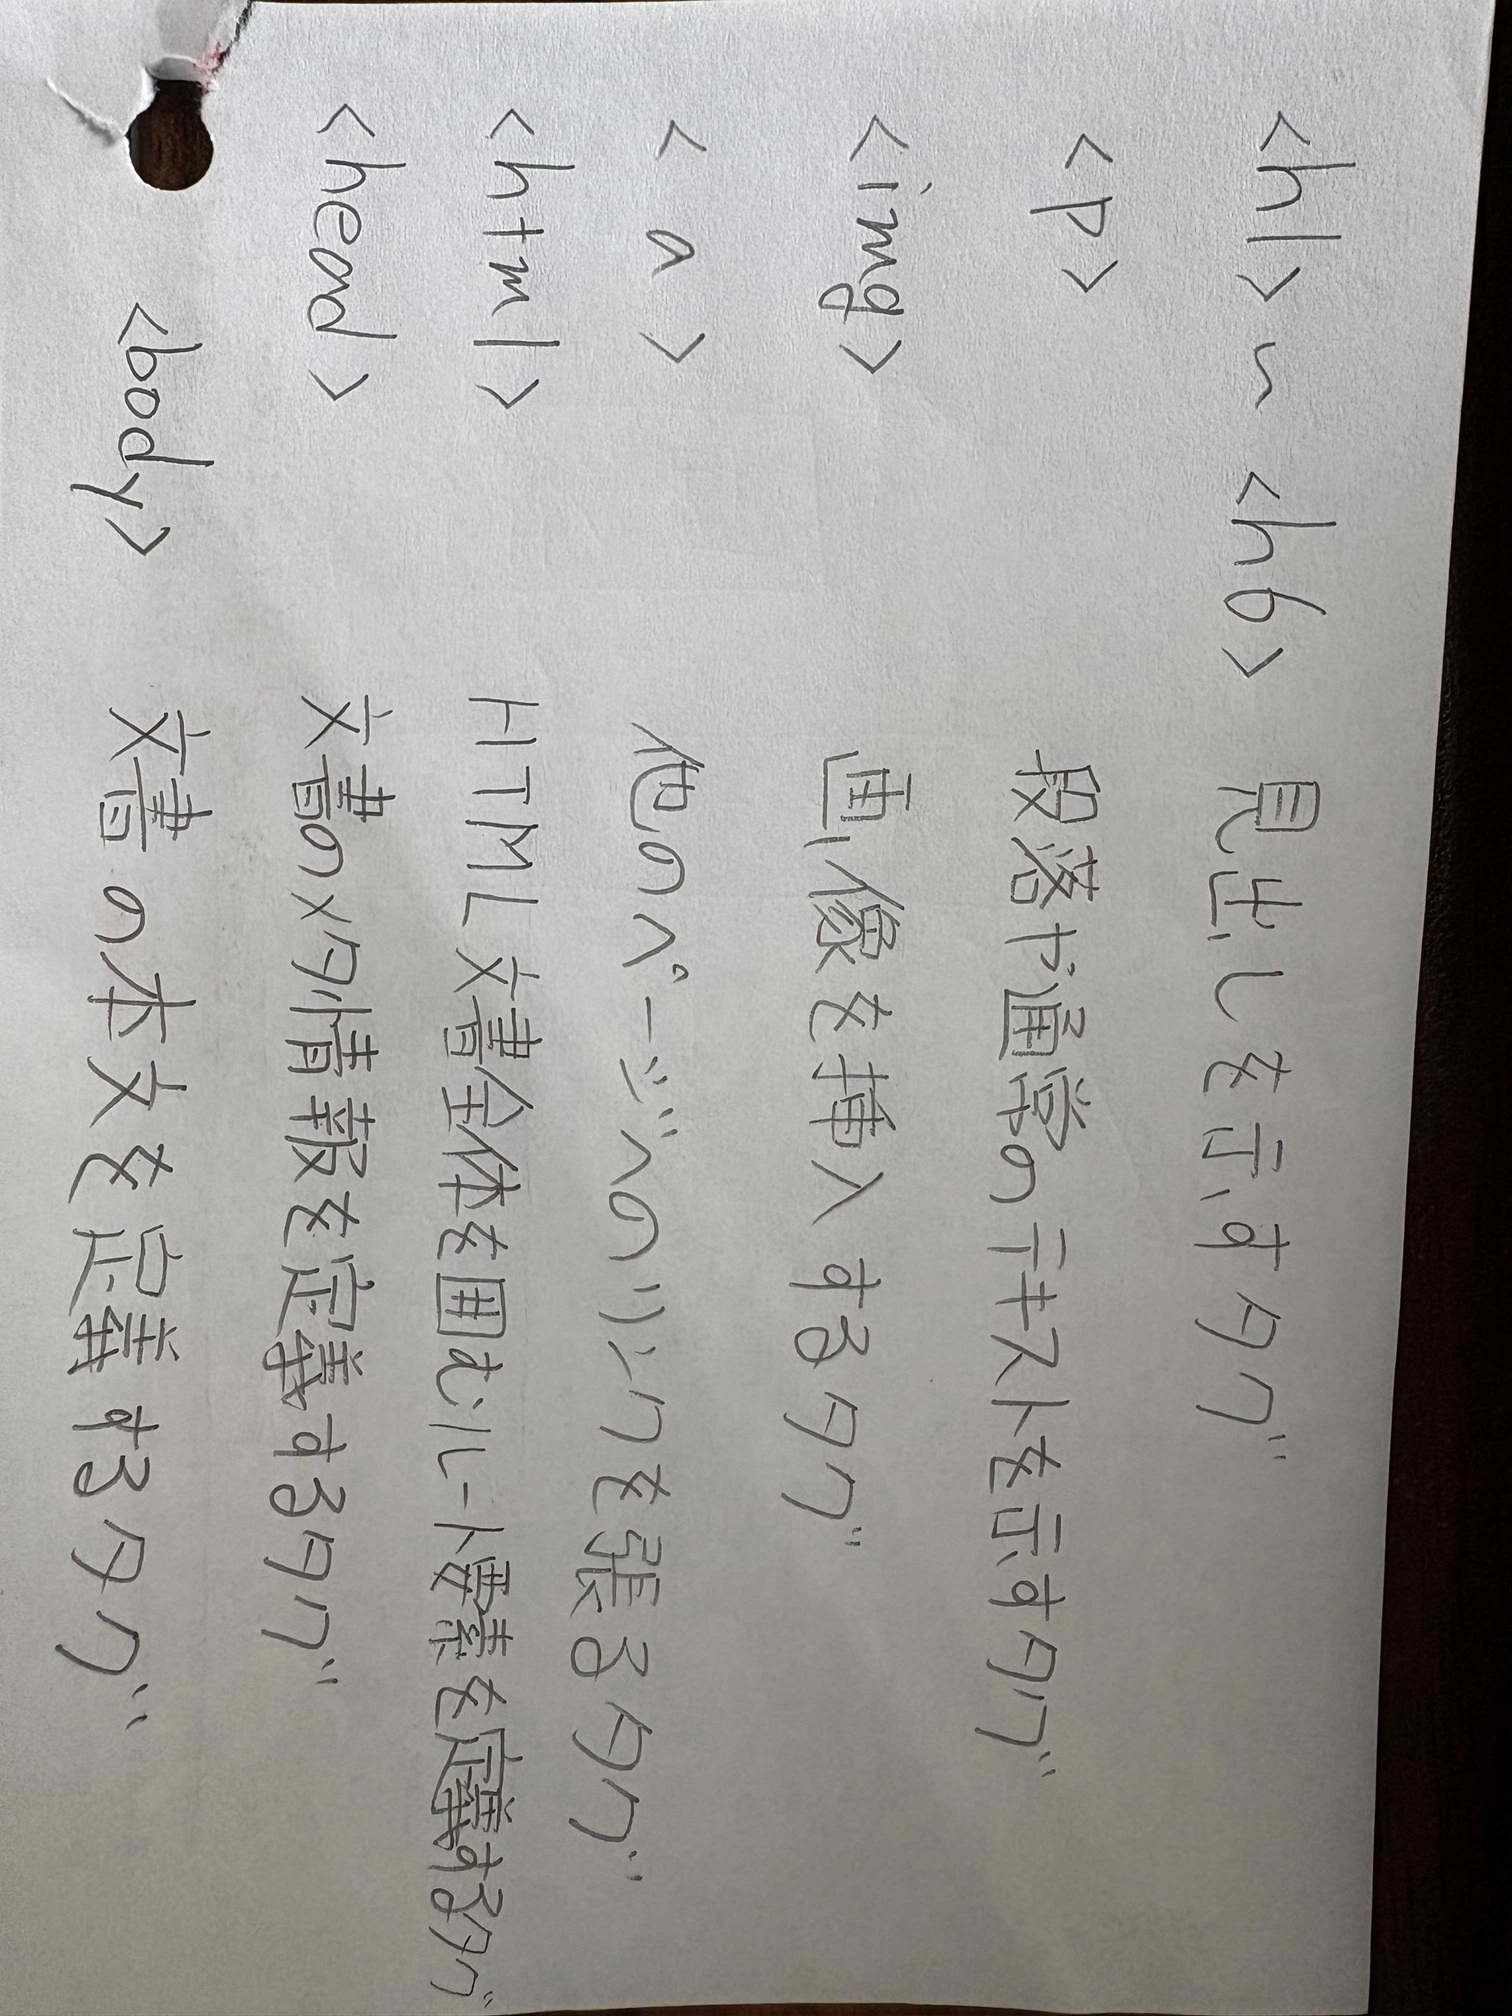 <h1>~<h6> 見出しを示すタグ
<p> 段落や通常のテキストを示すタグ
<img> 画像を挿入するタグ
<a> 他のページへのリンクを張るタグ
<html> HTML文書全体を囲むルート要素を定義するタグ
<head> 文書のメタ情報を定義するタグ
<body> 文書の本文を定義するタグ